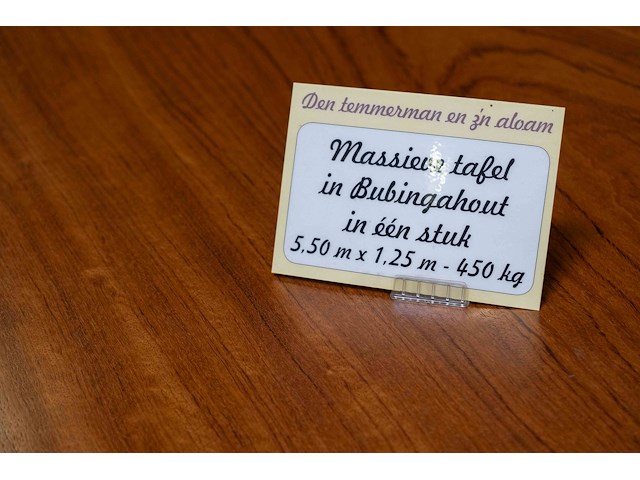 Den temmerman en z'n aloam
Massieve tafel
in Bubingahout
in één stuk
5,50 m x 1,25 m - 450 kg